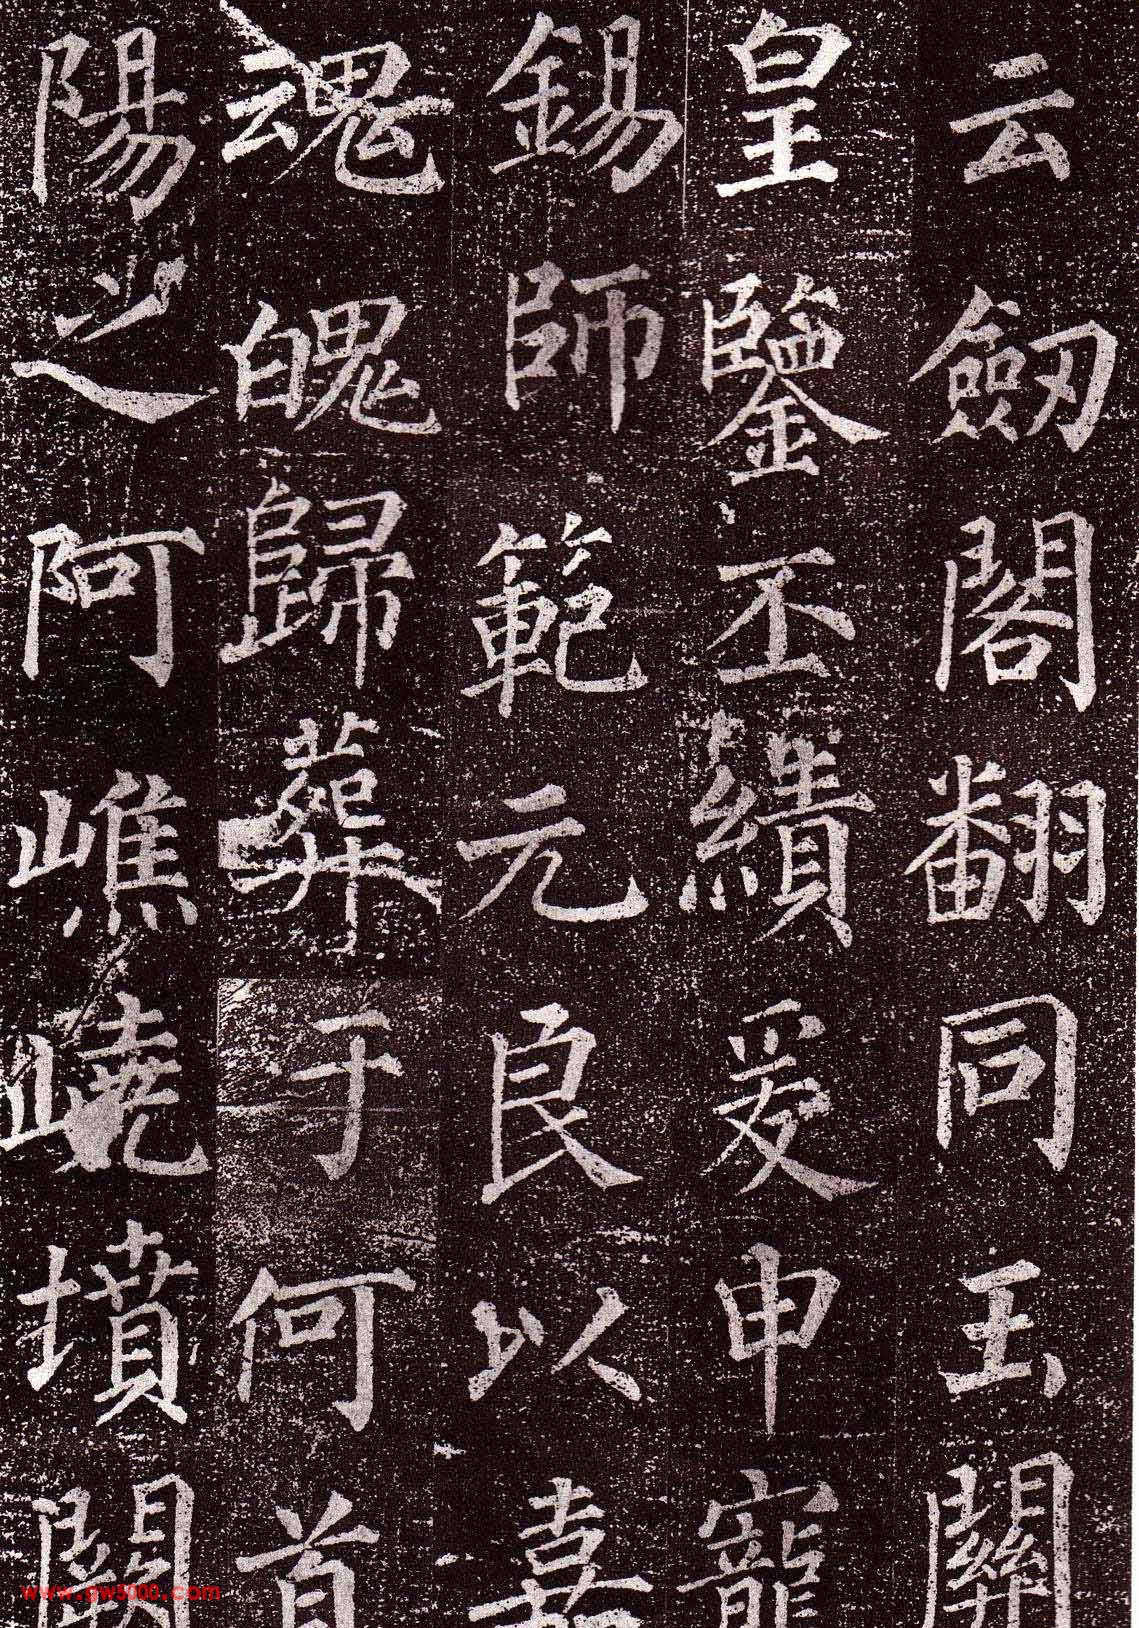 云劒閣翻同玉關
皇鑒丕績爰申寵
錫師範元良以嘉
魂魄歸葬于何首
陽之阿嶕嶢墳闕
www.gw5000.com